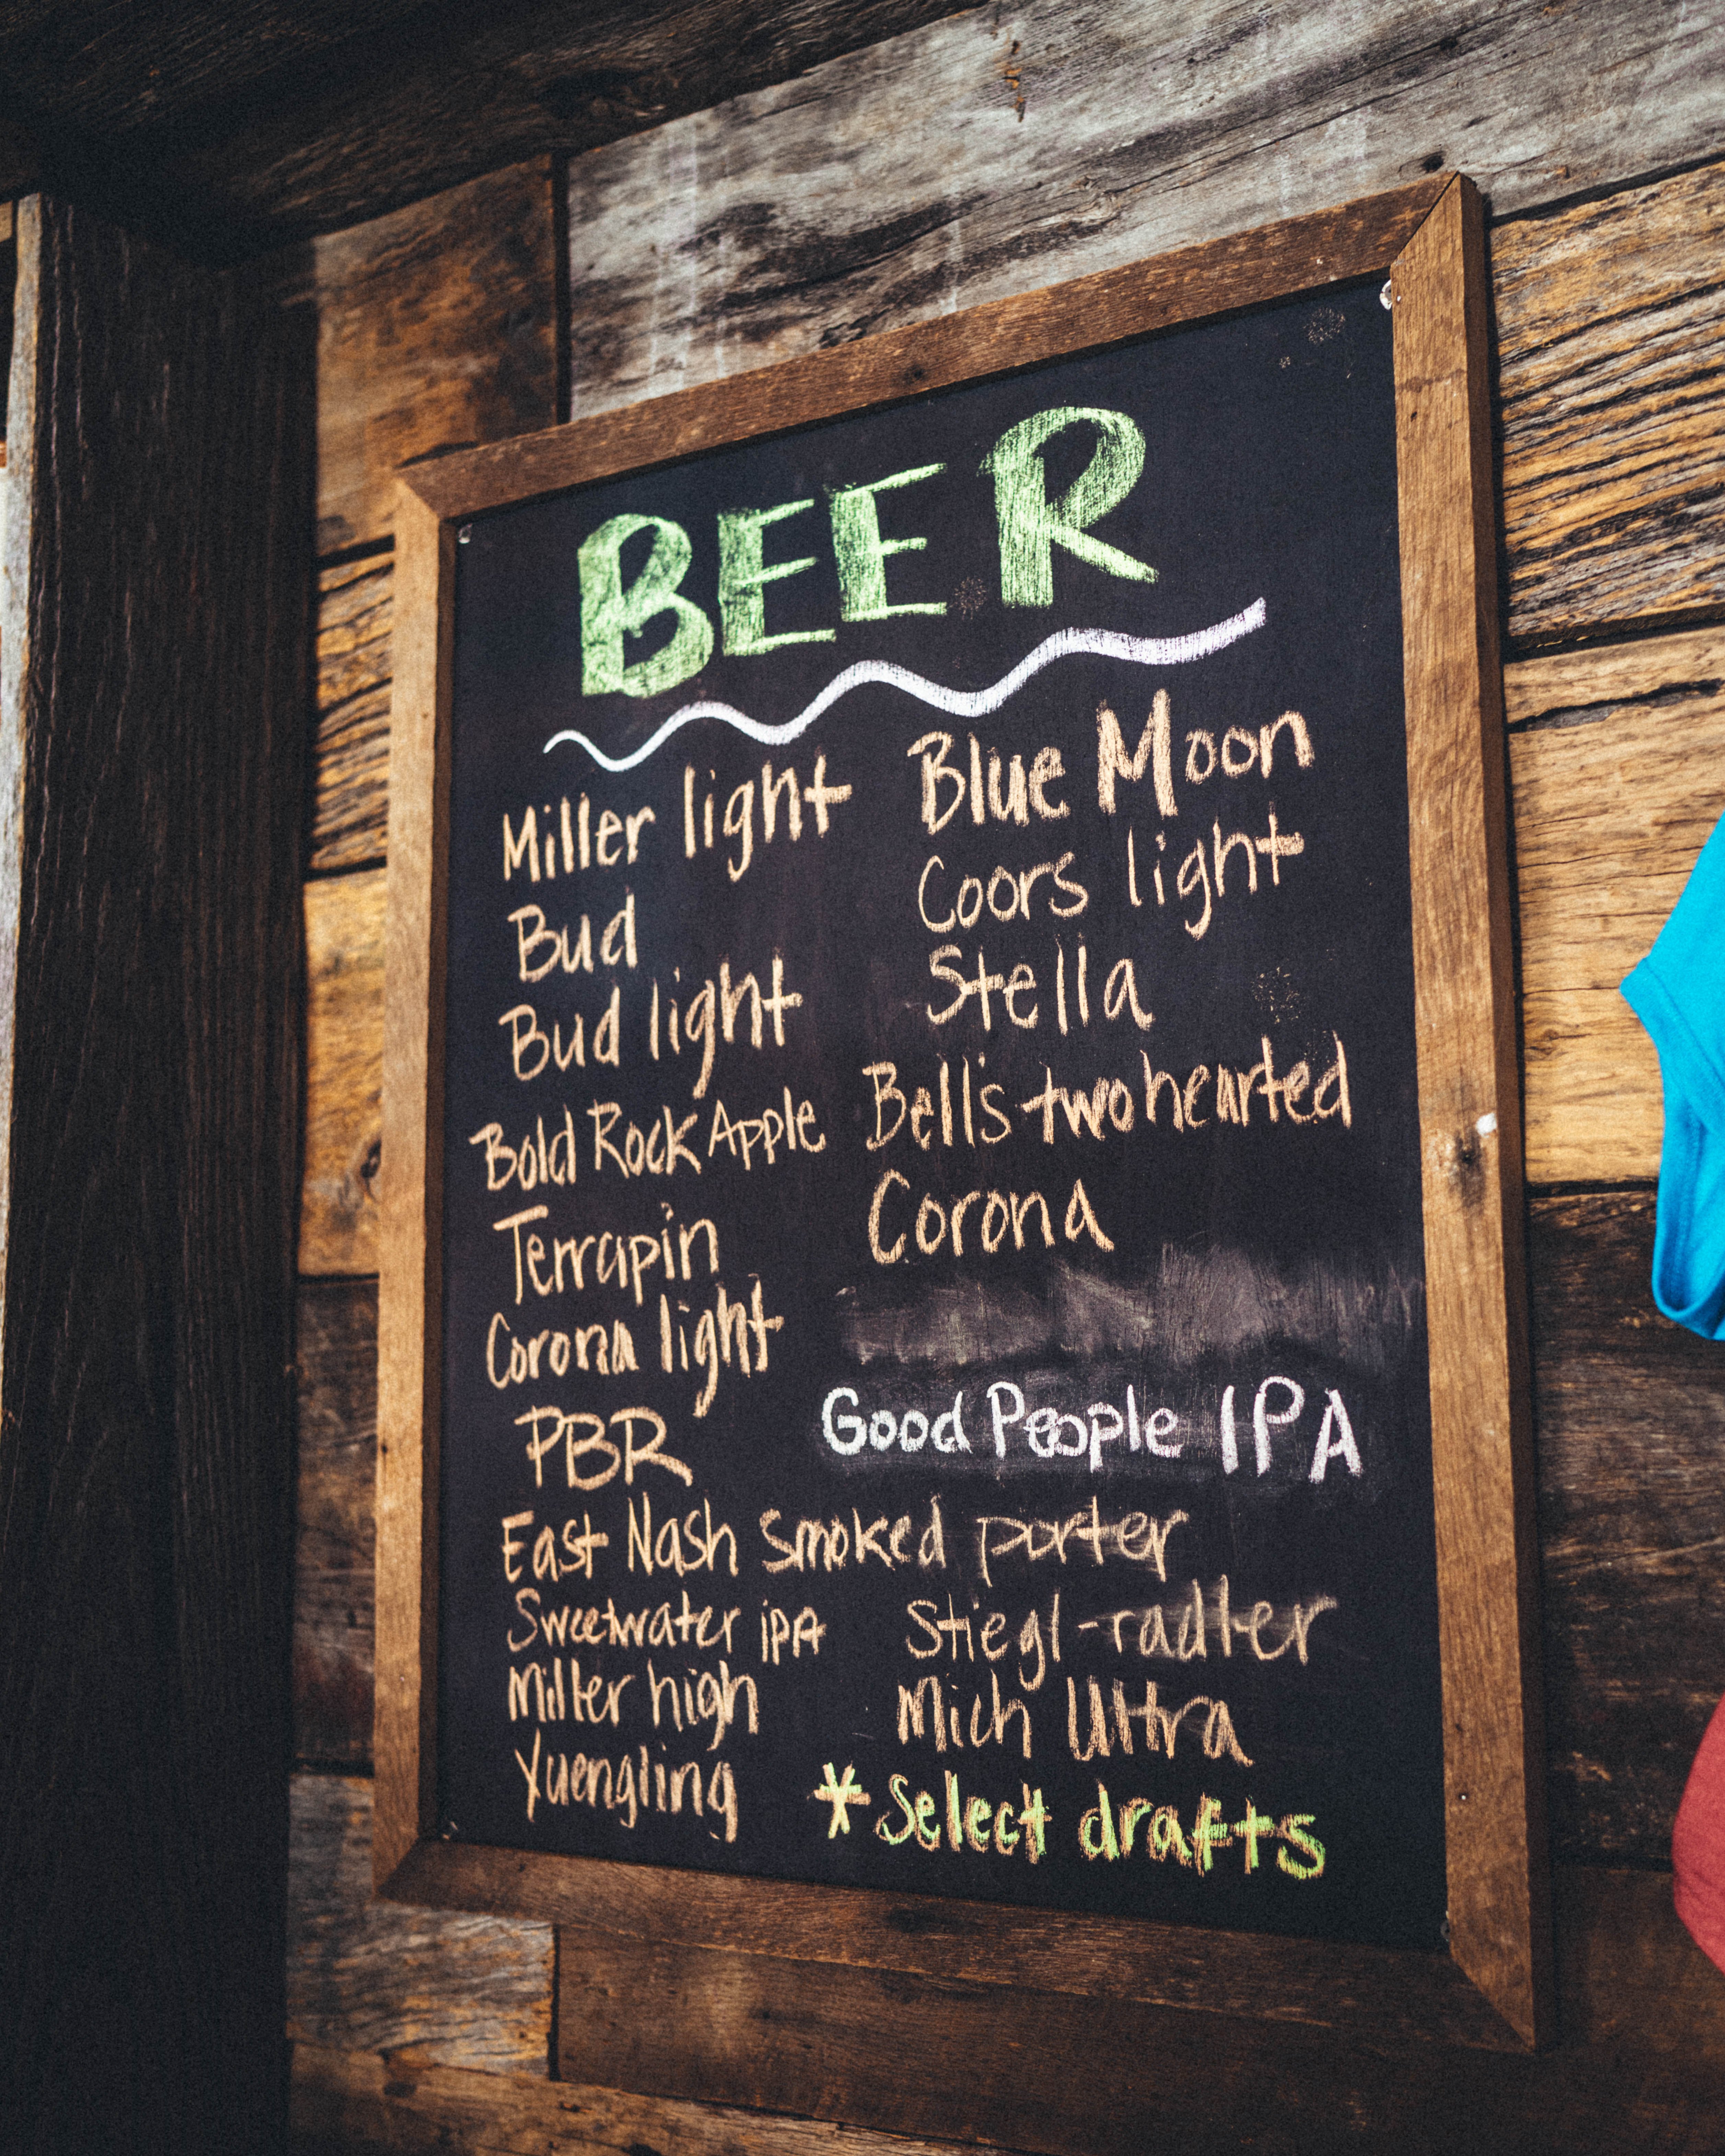 BEER
Miller light
Bud
Bud light
Bold Rock Apple
Terrapin
Corona light
PBR
East Nash smoked porter
Sweetwater iPA
Miller high
Yuengling
Blue Moon
Coors light
Stella
Bell's two hearted
Corona
Good People IPA
Stiegl-radler
Mich Ultra
*Select drafts